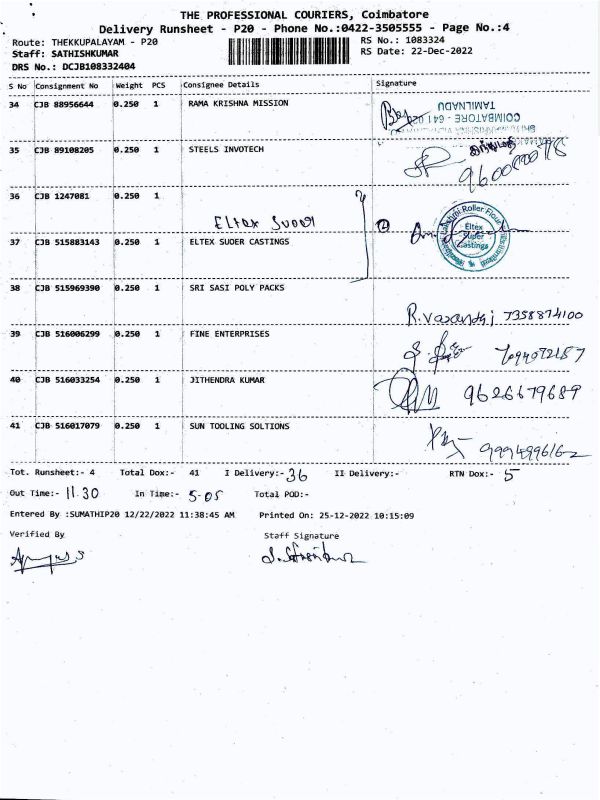 THE PROFESSIONAL COURIERS, Coimbatore
Delivery Runsheet - P20 - Phone No.:0422-3505555 - Page No.:4
Route: THEKKUPALAYAM - P20
RS No.: 1083324
Staff: SATHISHKUMAR
RS Date: 22-Dec-2022
DRS No.: DCJB108332404
S No Consignment No Weight PCS Consignee Details Signature
34 CJB 88956644 0.250 1 RAMA KRISHNA MISSION
COIMBATORE - 641 020
TAMILNADU
35 CJB 89108205 0.250 1 STEELS INVOTECH
36 CJB 1247081 0.250 1
Eltex Suoer
Lakshmi Roller Flour
Eltex
Super
Castings
37 CJB 515883143 0.250 1 ELTEX SUOER CASTINGS
38 CJB 515969390 0.250 1 SRI SASI POLY PACKS
R.Vasanthi 7358874100
39 CJB 516006299 0.250 1 FINE ENTERPRISES
7094072187
40 CJB 516033254 0.250 1 JITHENDRA KUMAR
9626679689
41 CJB 516017079 0.250 1 SUN TOOLING SOLTIONS
9994996162
Tot. Runsheet:- 4 Total Dox:- 41 I Delivery:- 36 II Delivery:- RTN Dox:- 5
Out Time:- 11.30 In Time:- 5-05 Total POD:-
Entered By :SUMATHIP20 12/22/2022 11:38:45 AM Printed On: 25-12-2022 10:15:09
Verified By Staff Signature